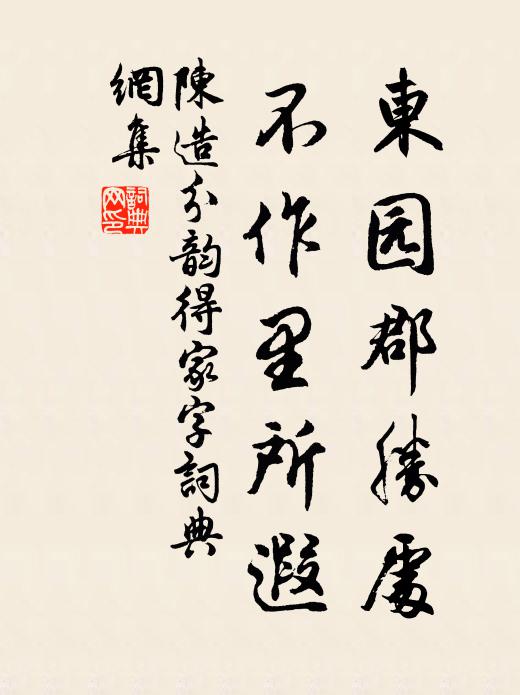 東园郡勝處
不作里所遐
陳造分韵得家字詞典
網集
詞典網印